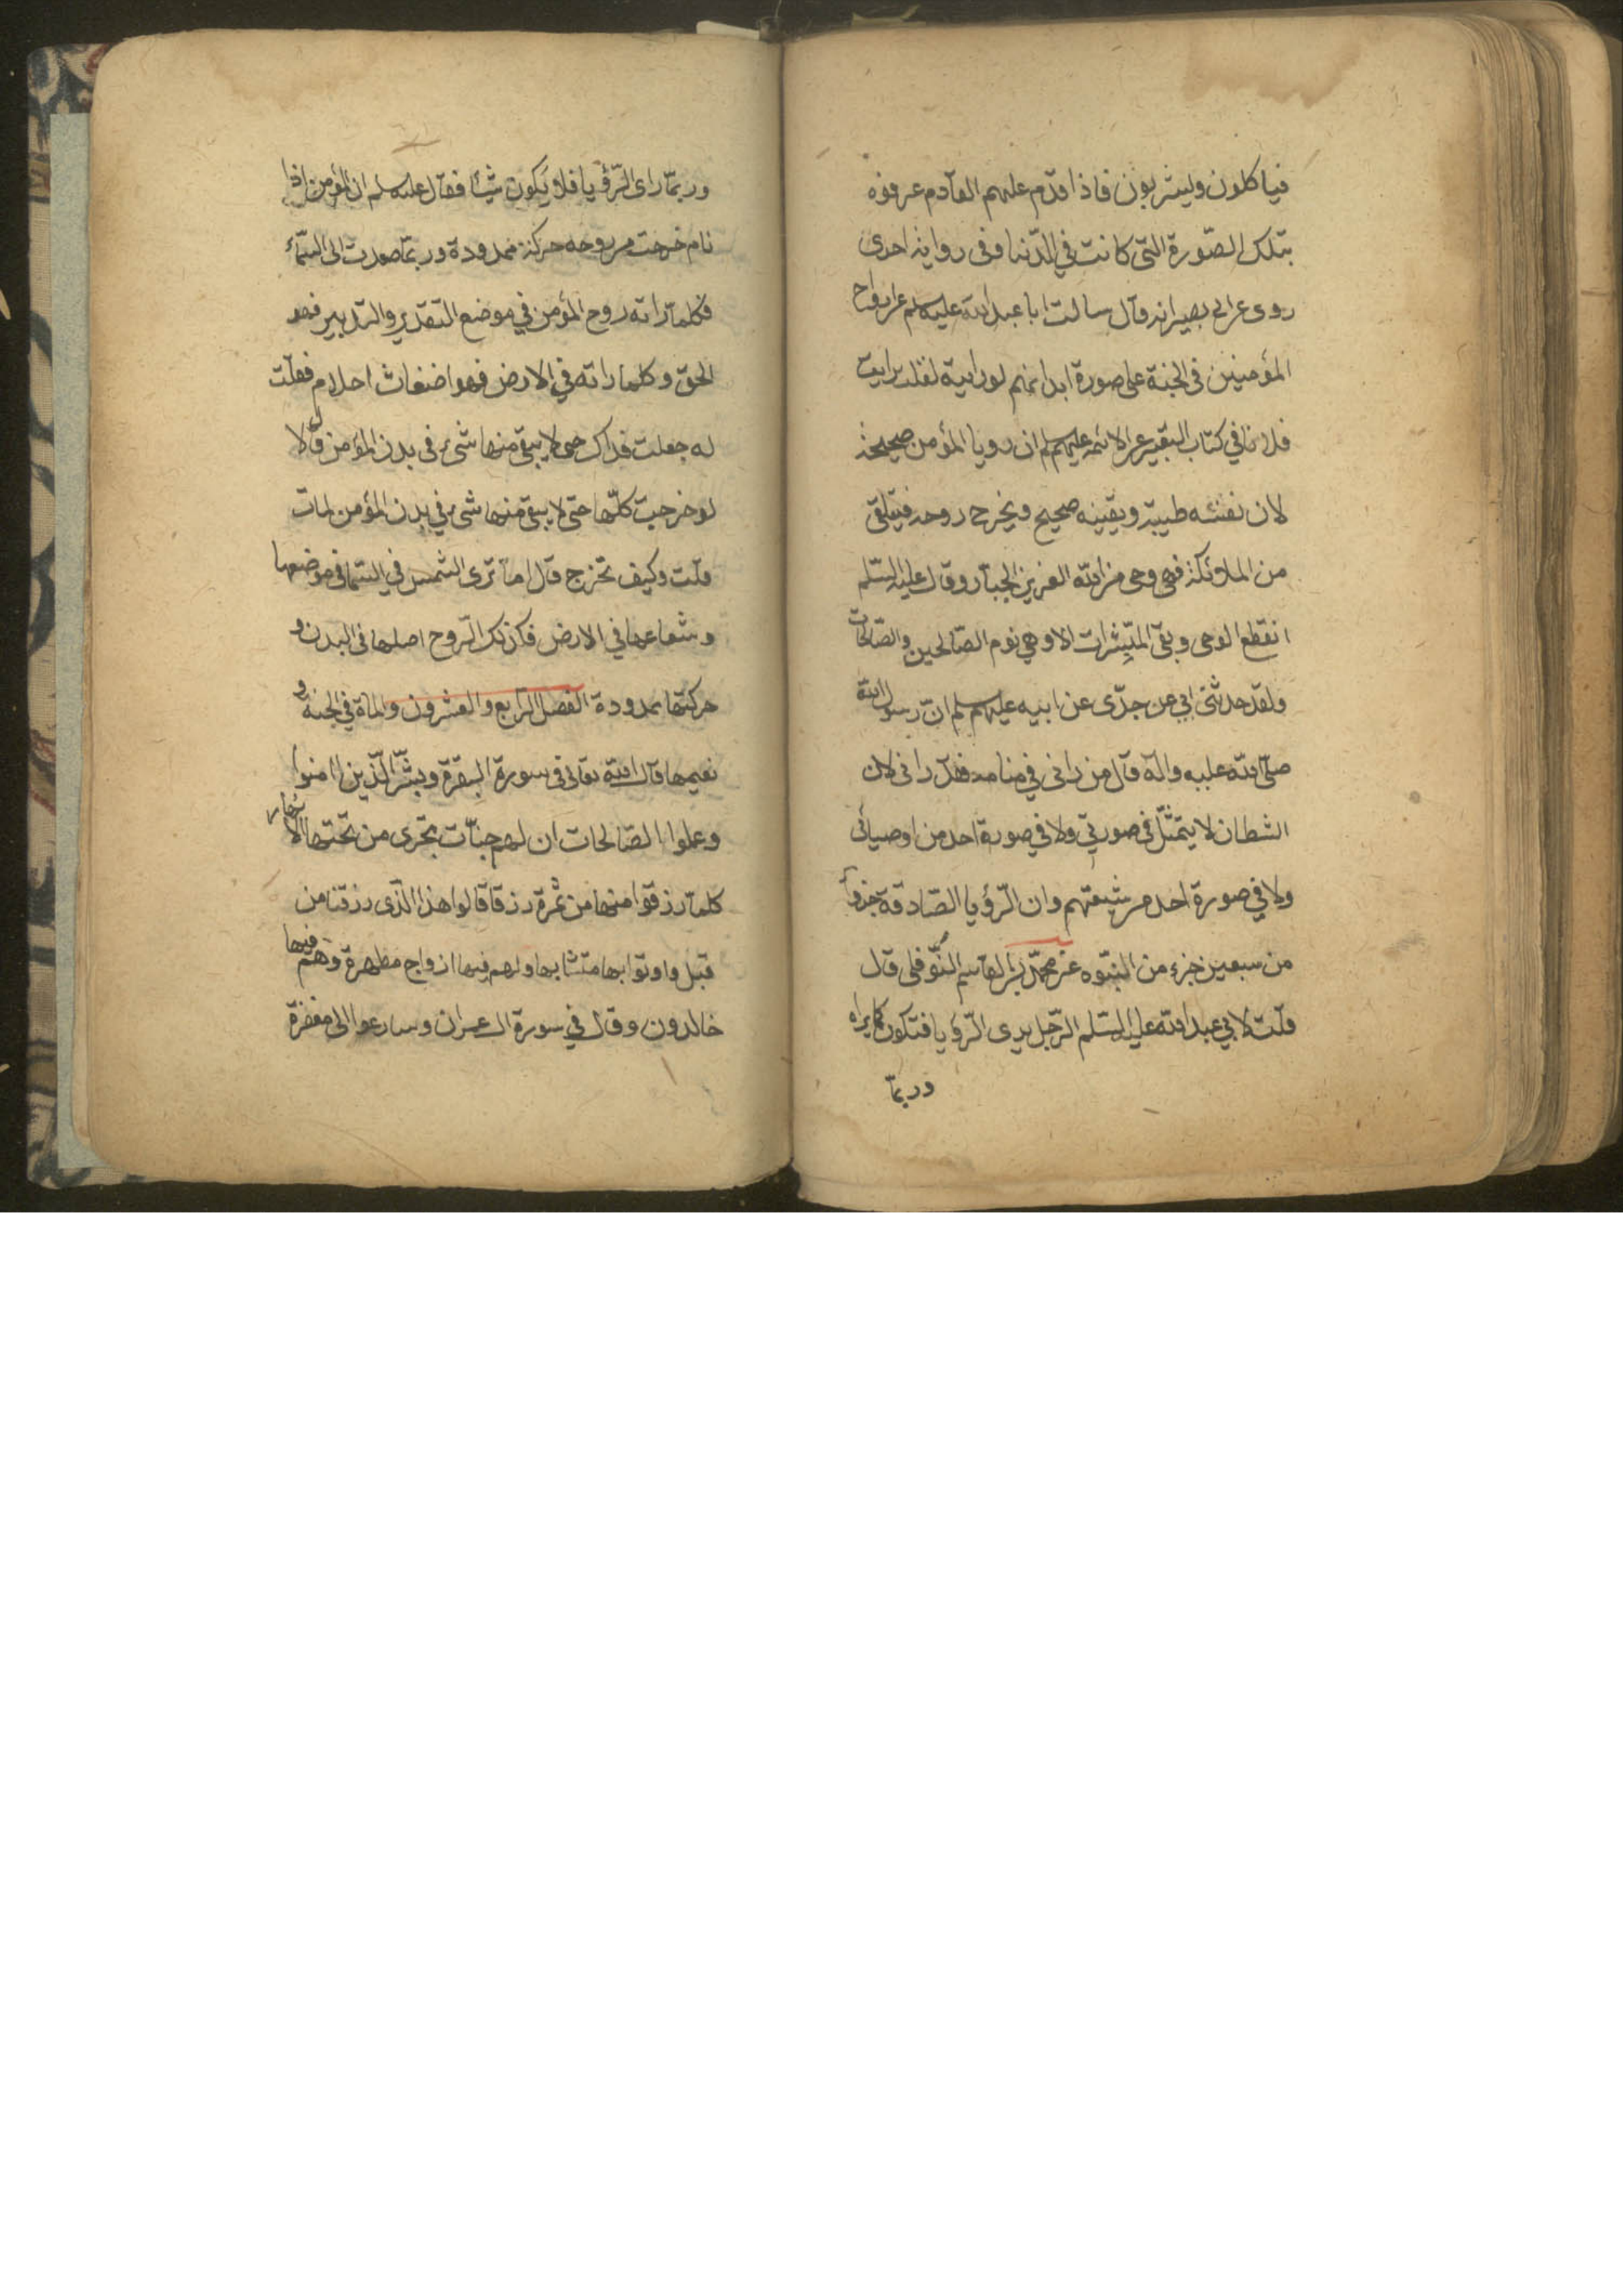 فياكلون ويشربون فاذا قدم عليهم القادم عرفوه
بتلك الصّورة التى كانت في الدّنيا وفى رواية اخرى
روى عن ابى بصير انه قال سالت ابا عبد الله عليه سلم عن ارواح
المؤمنين فى الجنة على صورة ابدانهم لو رايته لقلت رايت
فلانا في كتاب التعبير عن الائمه عليهم سلم ان رويا المؤمن صحيحة
لان نفسه طيبة ويقينه صحيح ويخرج روحه فيتلقى
من الملائكة فهى وحى من الله العزيز الجبار وقال عليه السّلم
انقطع الوحى وبقى المبّشرات الا وهي نوم الصّالحين والصّالحات
ولقد حدثنى ابي عن جدّى عن ابيه عليهم سلم انّ رسول الله
صلّى الله عليه واله قال من رانى في منامه فقد رانى لان
الشطان لا يتمثّل فى صورتي ولا في صورة احد من اوصيائى
ولا في صورة احد من شيعتهم وان الرّؤيا الصّادقة جزوا
من سبعين جزء من النبّوه عن محمّد بن القاسم النّوفلى قال
قلت لابي عبد الله عليه السّلم الرّجل يرى الرّؤيا فتكون كما يراه
وربمّا
وربمّا راى الرّؤيا فلا يكون شيأ فقال عليه سلم ان المؤمن اذا
نام خرجت من روحه حركة ممدودة وربمّا صعدت الى السّماء
فكلما راته روح المؤمن في موضع التقدير والتدبير فهو
الحقّ وكلما راته في الارض فهو اضغاث احلام فقلت
له جعلت فداك حتى لا يبقى منها شيء فى بدن المؤمن قال لا
لو خرجت كلّها حتى لا يبقى منها شيء في بدن المؤمن لمات
قلت وكيف تخرج قال اما ترى الشمس في السّما في موضعها
وشعاعها في الارض فكذلك الرّوح اصلها فى البدن و
حركتها ممدودة الفصل الرّابع والعشرون والمأة في الجنة و
نعيمها قال الله تعالى فى سورة البقرة وبشّر الّذين امنوا
وعملوا الصّالحات ان لهم جنّات تجرى من تحتها الانهار
كلما رزقوا منها من ثمرة رزقا قالوا هذا الّذى رزقنا من
قبل واوتوا بها متشابها ولهم فيها ازواج مطهرة وهم فيها
خالدون وقال في سورة ال عمران وسارعوا الى مغفرة